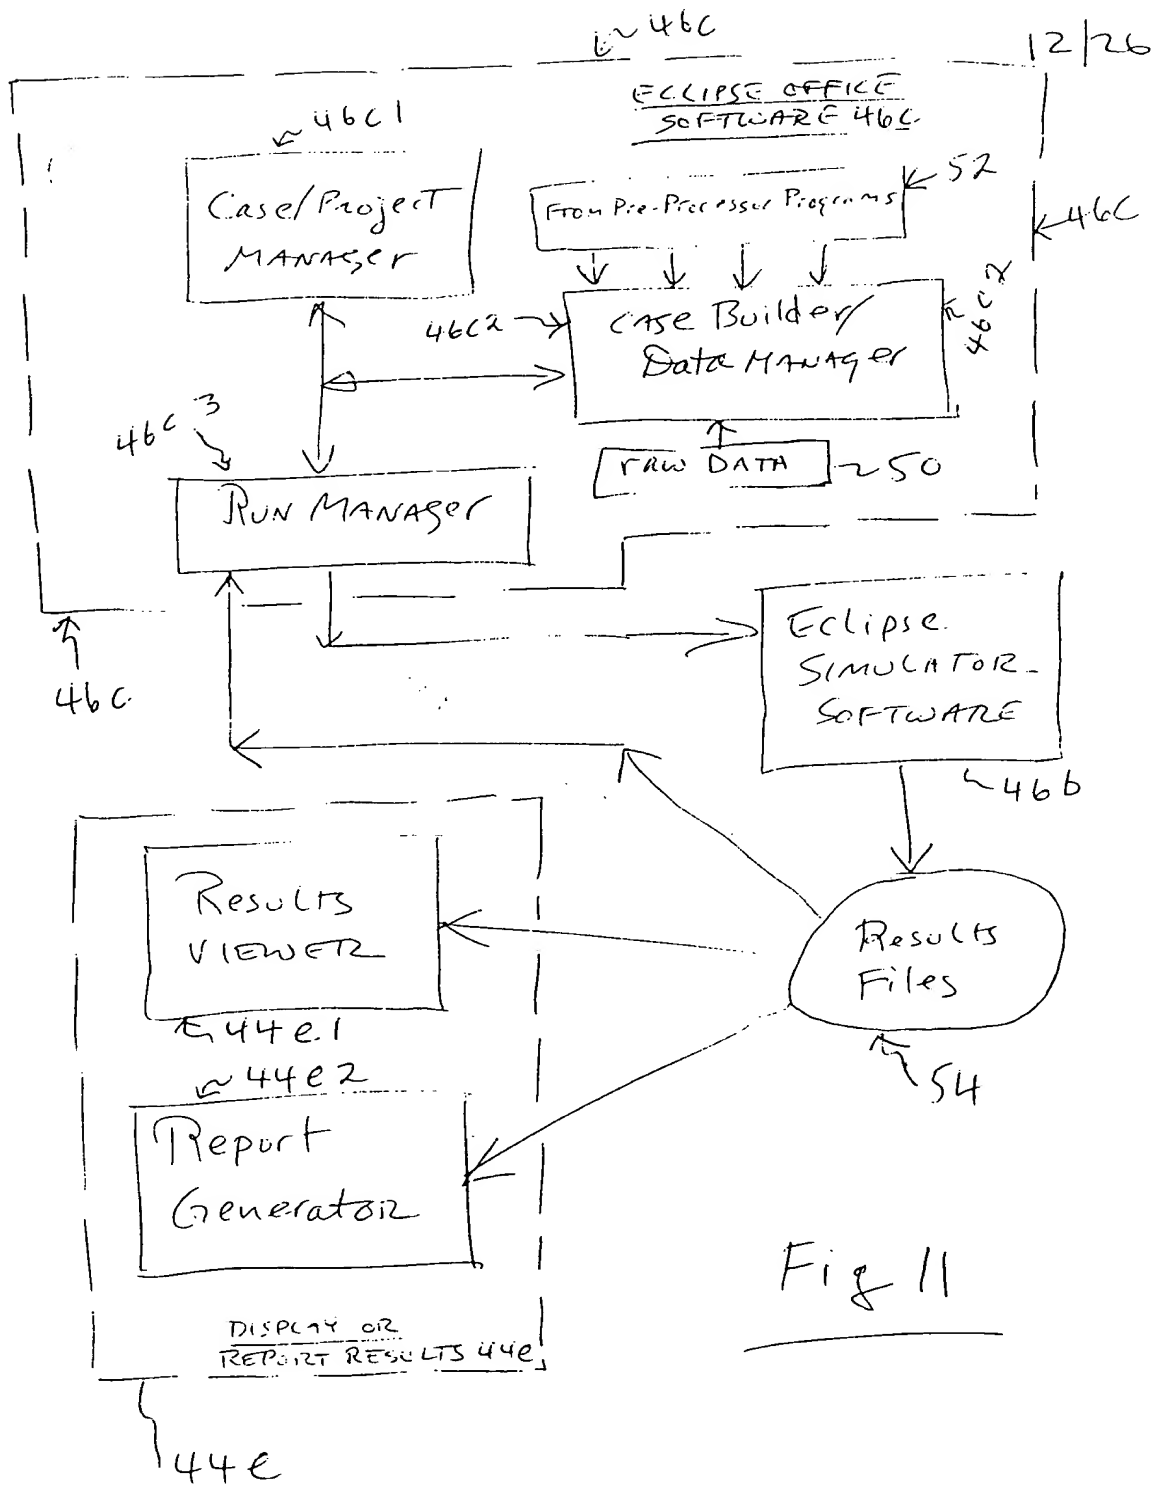 46c
12/26
ECLIPSE OFFICE
SOFTWARE 46c
46c1
Case/Project
MANAGER
52
From Pre-Processor Programs
46c
46c2
46c2
CASE Builder/
Data MANAGER
46c3
raw DATA
50
RUN MANAGER
46c
Eclipse
SIMULATOR
SOFTWARE
46b
Results
VIEWER
44e.1
Results
Files
54
44e2
Report
Generator
Fig 11
DISPLAY OR
REPORT RESULTS 44e
44e